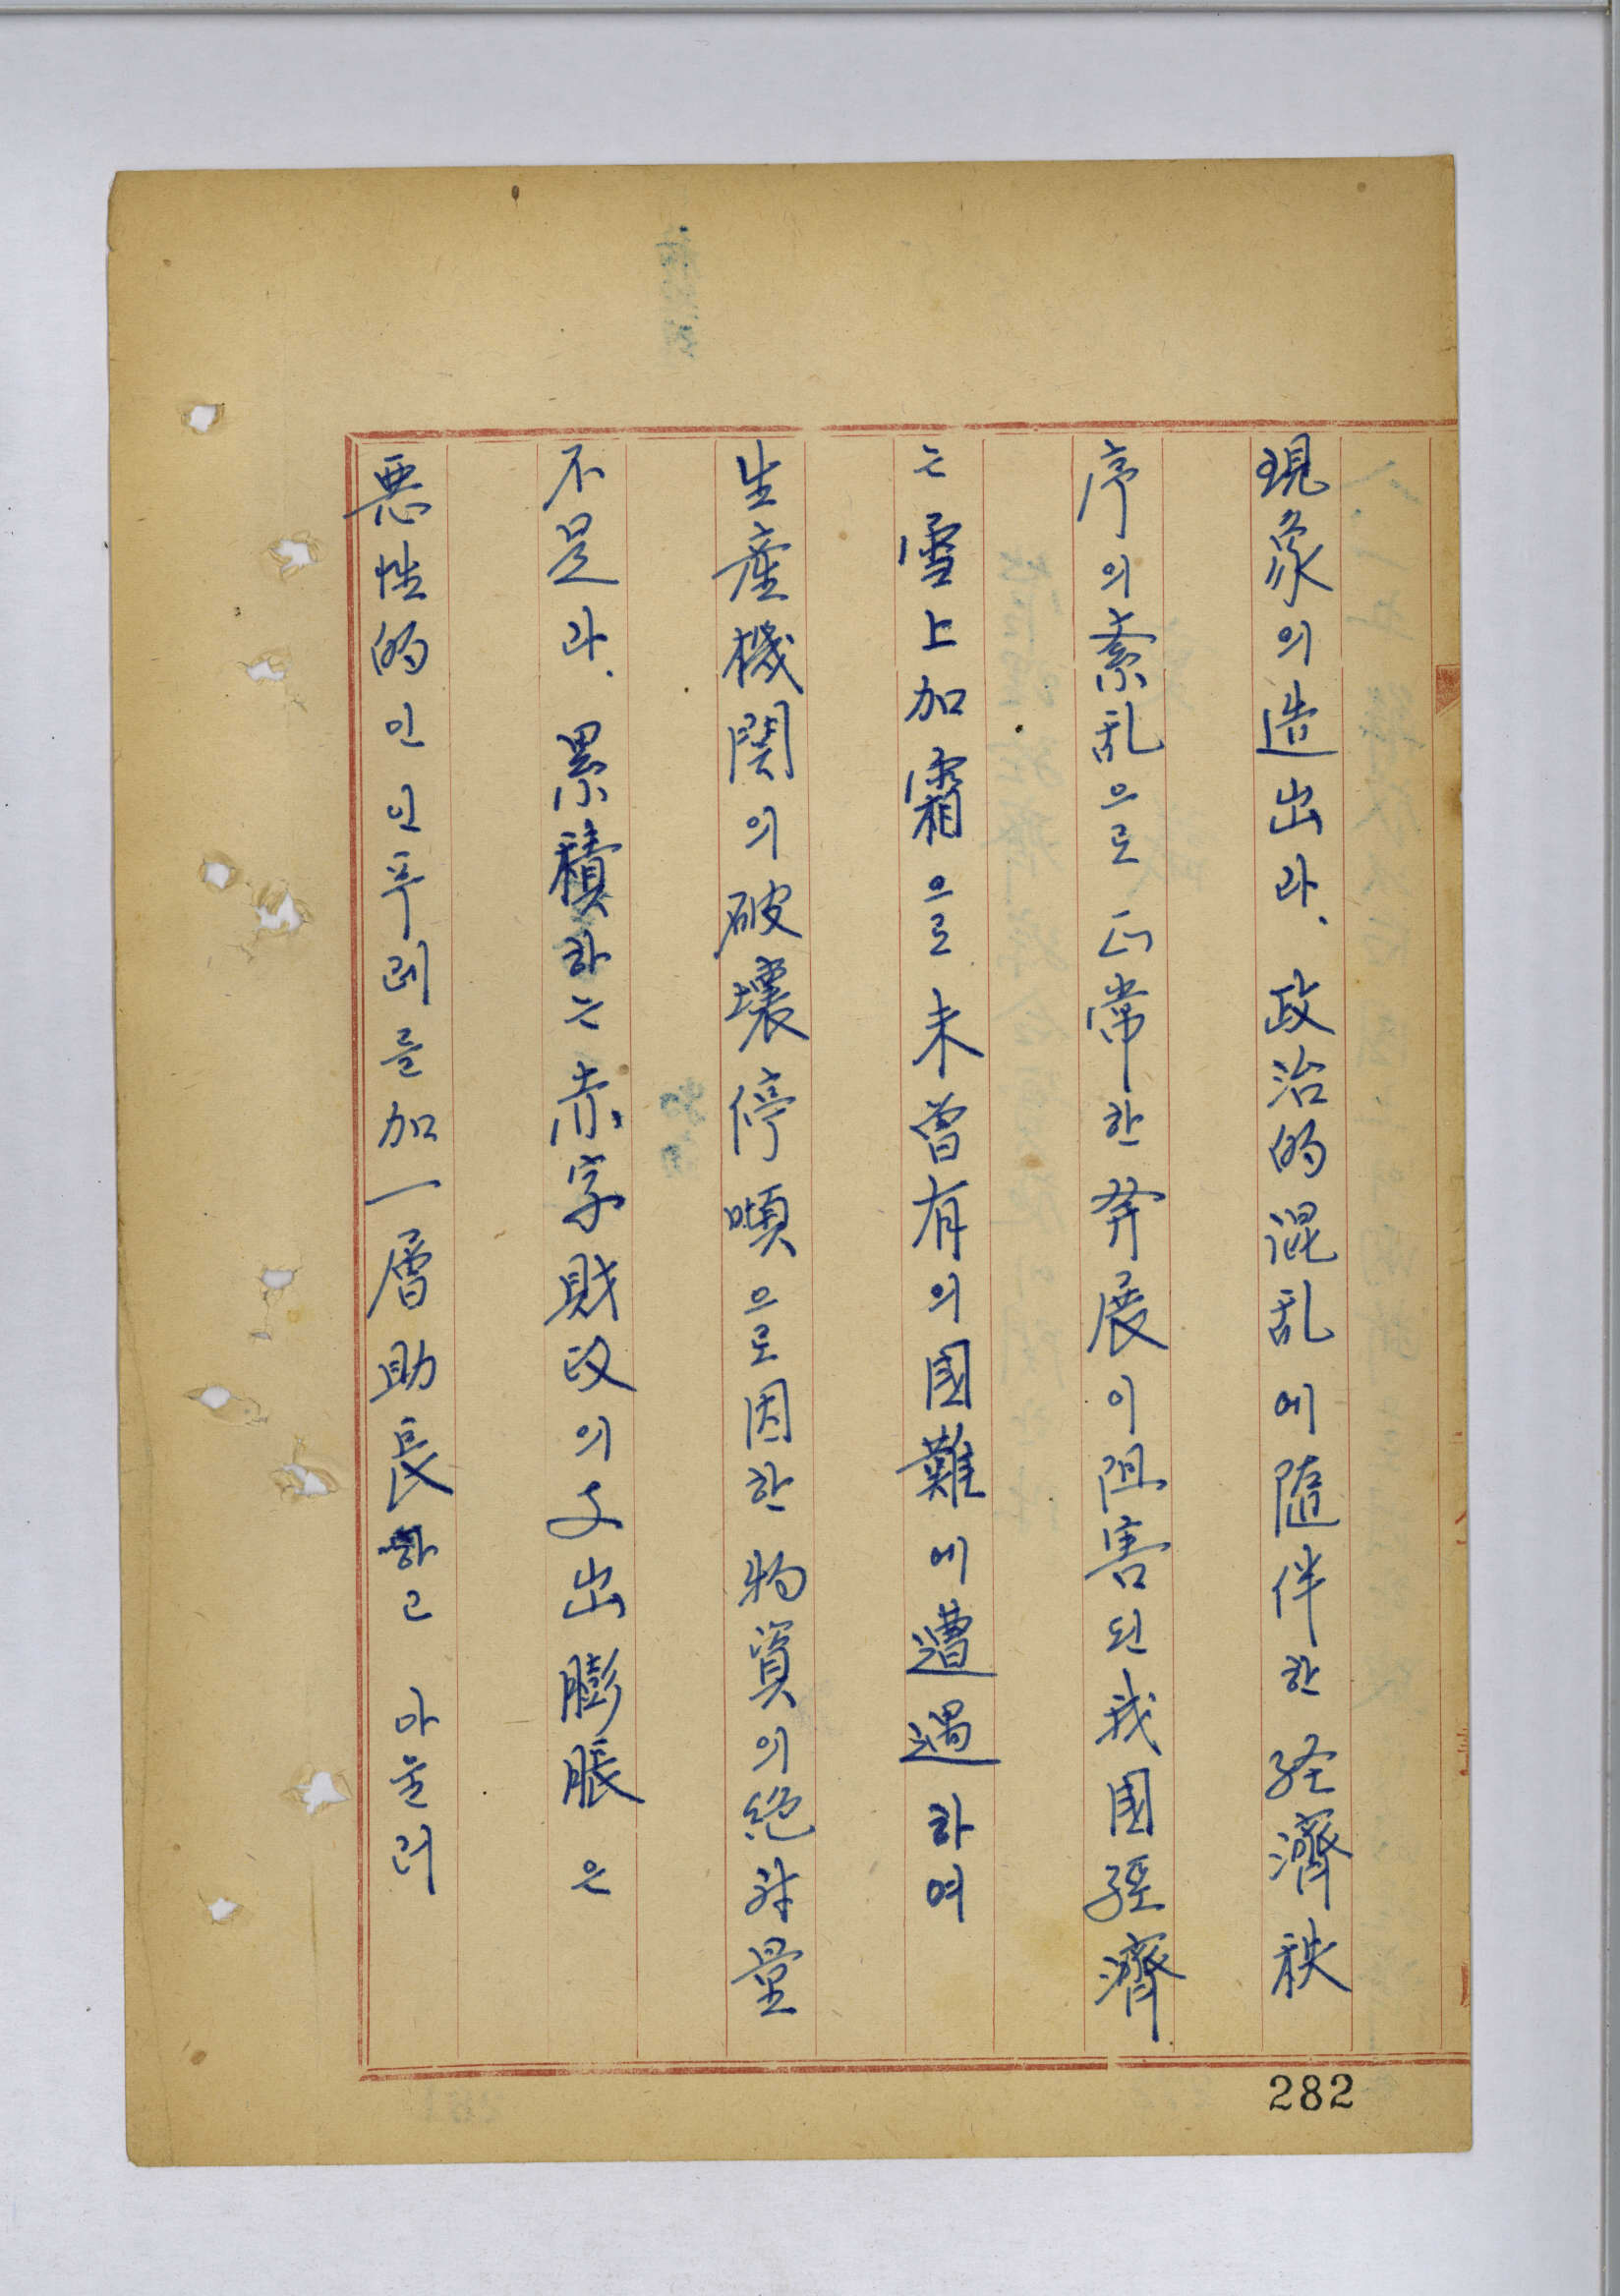 現象의造出과、政治的混乱에隨伴한経濟秩
序의紊乱으로 正常한 発展이阻害된我国經濟
는雪上加霜으로未曾有의國難에遭遇하여
生産機関의破壞停頓으로因한物資의絶対量
不足과、累積하는赤字財政의支出膨脹은
悪性的인인후레를加一層助長하고 아울러
282